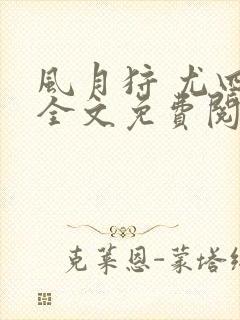 風月狩 尤四
全文免費閱
克萊恩-蒙塔